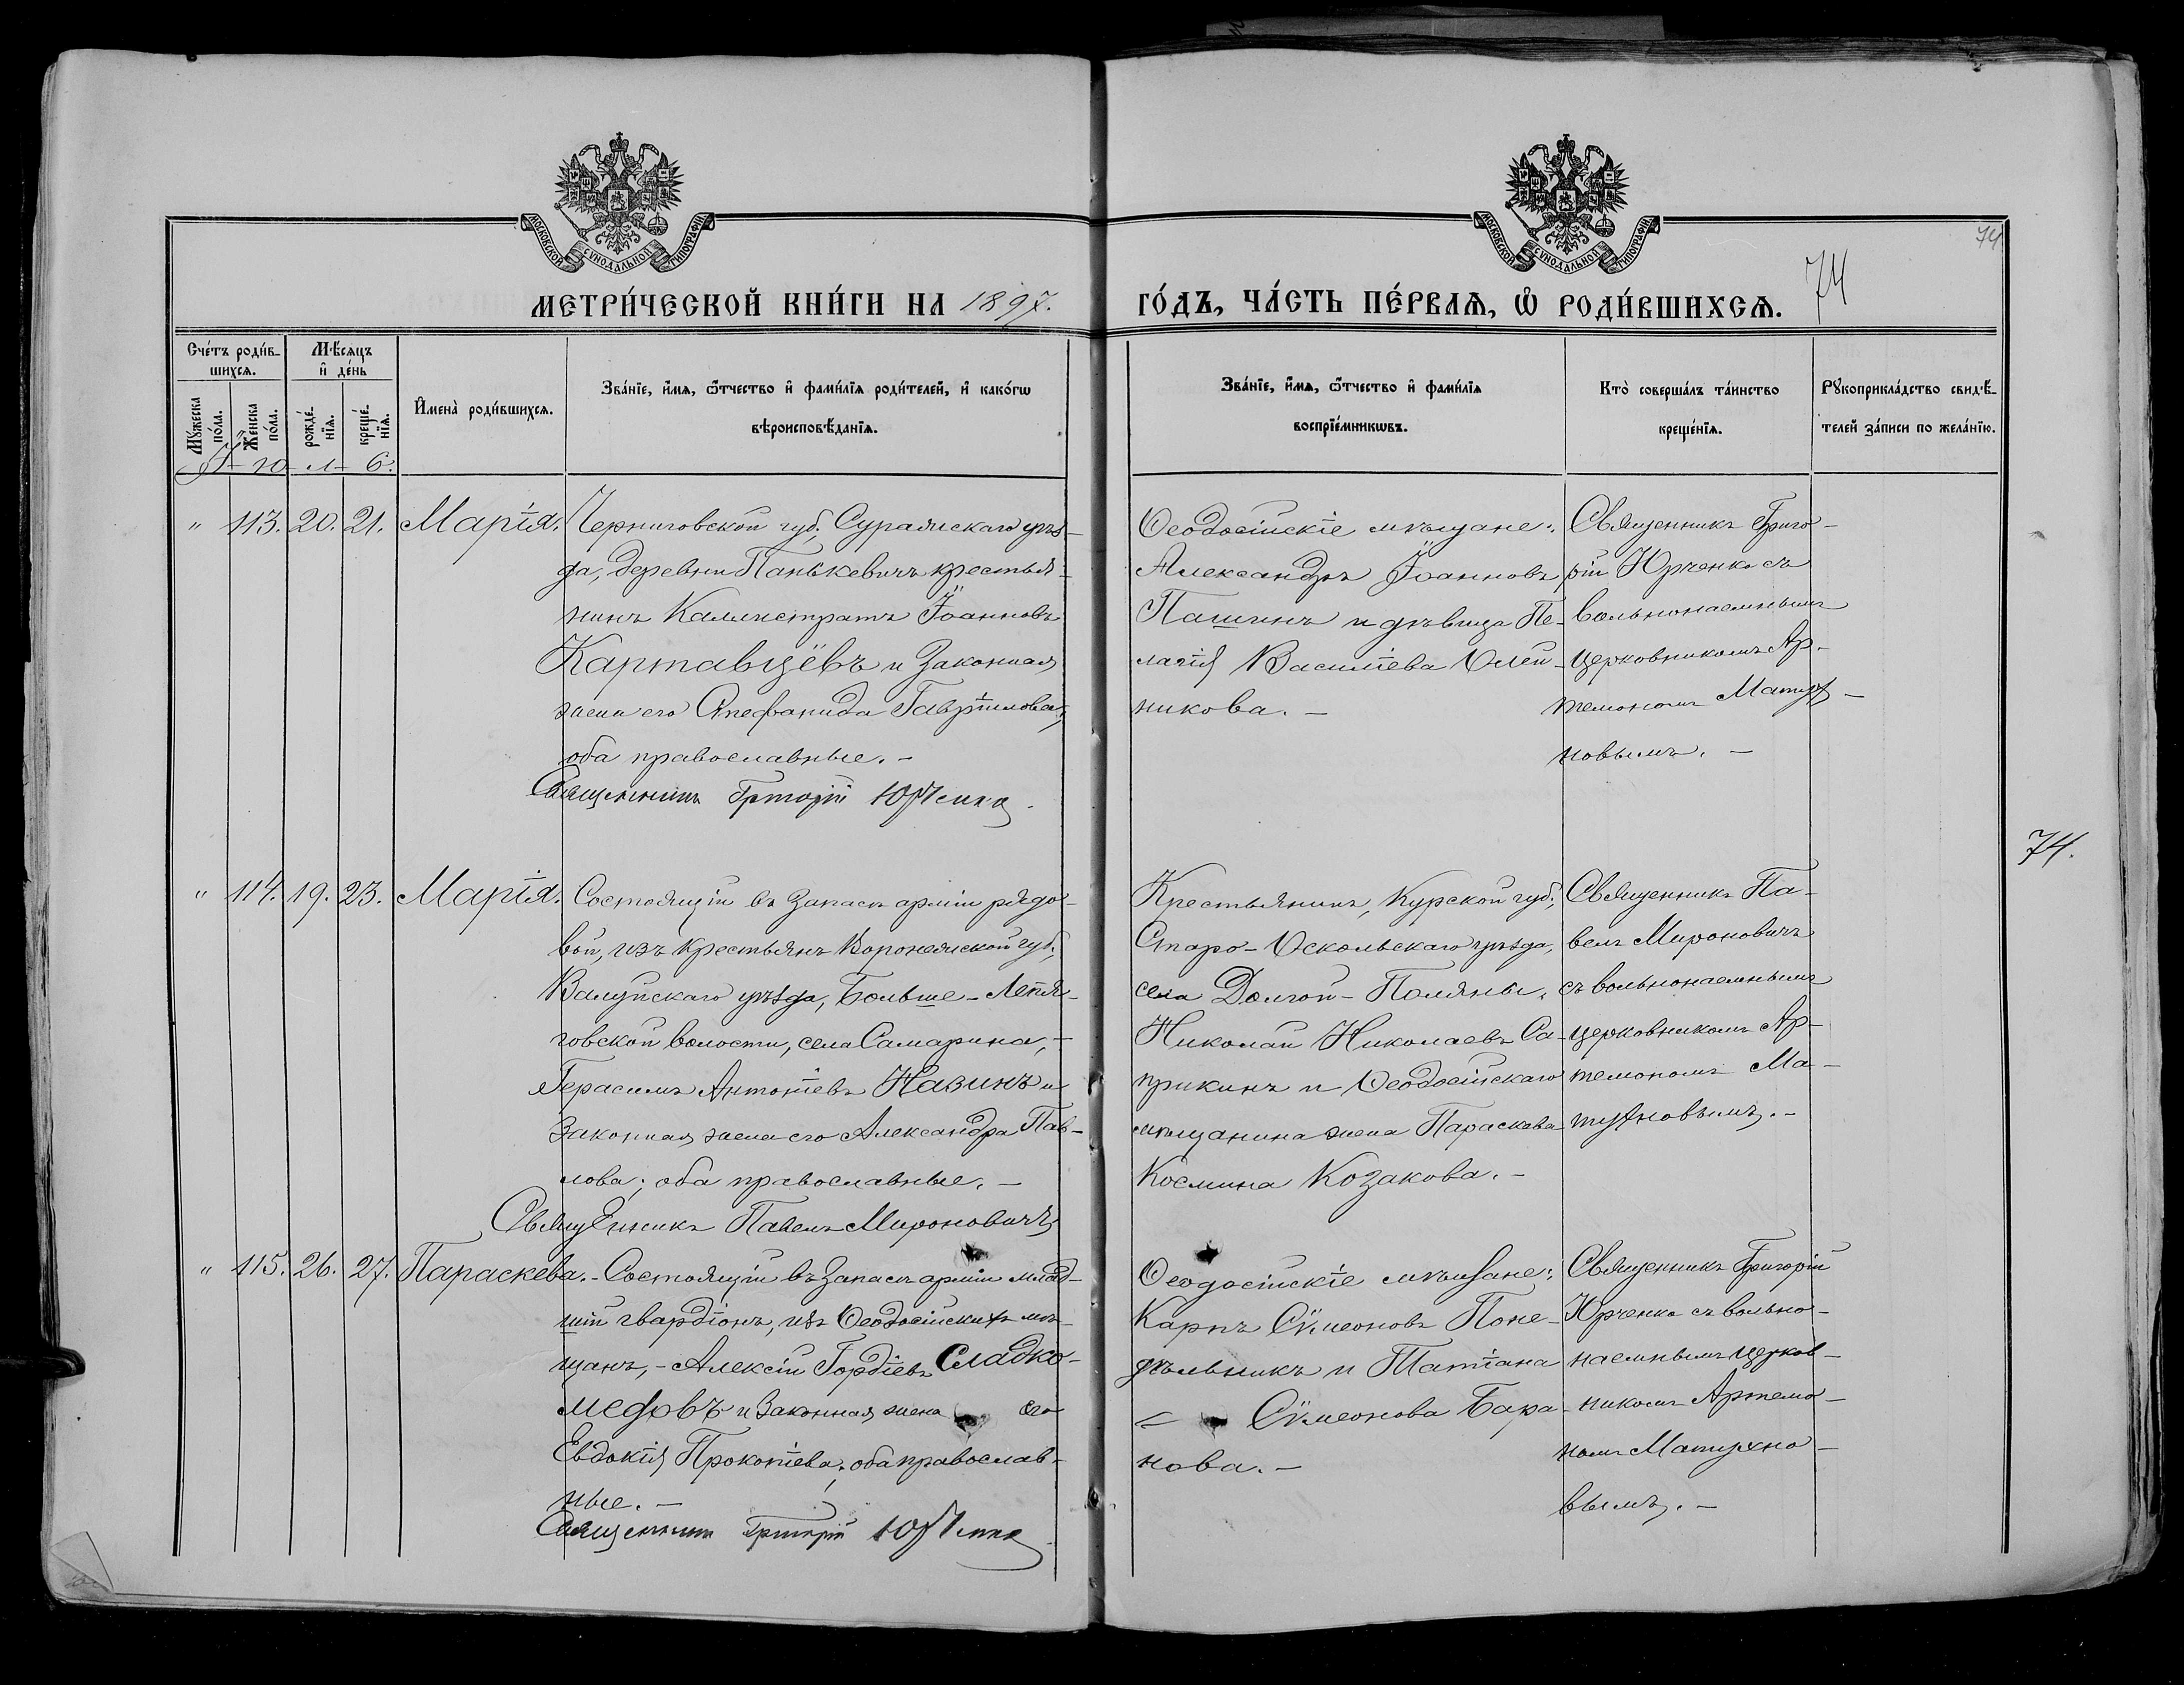 74
МОСКОВСКОЙ СѴНОДАЛЬНОЙ ТИПОГРАФІИ
МОСКОВСКОЙ СѴНОДАЛЬНОЙ ТИПОГРАФІИ
МЕТРИ́ЧЕСКОЙ КНИ́ГИ НА 1897.
ГО́ДЪ, ЧА́СТЬ ПЕ́РВАѦ, Ѡ҆ РОДИ́ВШИХСѦ. 74
Сче́тъ роди́в-
шихсѧ.
Мѣ́сѧцъ
и҆ де́нь
Мꙋ́жеска
по́ла.
Же́нска
по́ла.
рожде́-
нїѧ.
креще́-
нїѧ.
И҆мена̀ роди́вшихсѧ.
Зва́нїе, и҆́мѧ, ѻ҆́тчество и҆ фами́лїѧ роди́телей, и҆ како́гѡ
вѣроисповѣ́данїѧ.
Зва́нїе, и҆́мѧ, ѻ҆́тчество и҆ фами́лїѧ
воспрїе́мникѡвъ.
Кто̀ соверша́лъ та́инство
креще́нїѧ.
Рꙋкоприкла́дство свидѣ́-
телей за́писи по жела́нїю.
І-ю-л-ь.
" 113. 20. 21. Марія.
Черниговской губ., Суражскаго уѣз-
да, деревни Панькевичъ крестья-
нинъ Каллистратъ Іоанновъ
Картавцёвъ и законная
жена его Стефанида Гавріилова;
оба православные. -
Священникъ Григорій Юрченко.
Ѳеодосійскіе мѣщане:
Александръ Іоанновъ
Пашинъ и дѣвица Пе-
лагія Василіева Олей-
никова. -
Священникъ Григо-
рій Юрченко съ
вольнонаемнымъ
церковникомъ Ар-
темономъ Матух-
новымъ. -
74.
" 114. 19. 23. Марія.
Состоящій въ запасѣ арміи рядо-
вой, изъ крестьянъ Воронежской губ.,
Валуйскаго уѣзда, Больше-Лепя-
говской волости, села Самарина, -
Герасимъ Антоніевъ Назинъ и
законная жена его Александра Пав-
лова; оба православные. -
Священникъ Павелъ Мироновичъ
Крестьянинъ, Курской губ.,
Старо-Оскольскаго уѣзда,
села Долгой-Поляны,
Николай Николаевъ Са-
прикинъ и Ѳеодосійскаго
мѣщанина жена Параскева
Космина Козакова. -
Священникъ Па-
велъ Мироновичъ
съ вольнонаемнымъ
церковникомъ Ар-
темономъ Ма-
тухновымъ. -
" 115. 26. 27. Параскева. -
Состоящій въ запасѣ арміи млад-
шій гвардіонъ, изъ Ѳеодосійскихъ мѣ-
щанъ, - Алексій Гордіевъ Сладко-
медовъ и законная жена его
Евдокія Прокопіева; оба православ-
ные. -
Священникъ Григорій Юрченко
Ѳеодосійскіе мѣщане:
Карпъ Сѵмеоновъ Поне-
дѣльникъ и Татіана
Сѵмеонова Бара-
нова. -
Священникъ Григорій
Юрченко съ вольно-
наемнымъ церков-
никомъ Артемо-
номъ Матухно-
вымъ. -